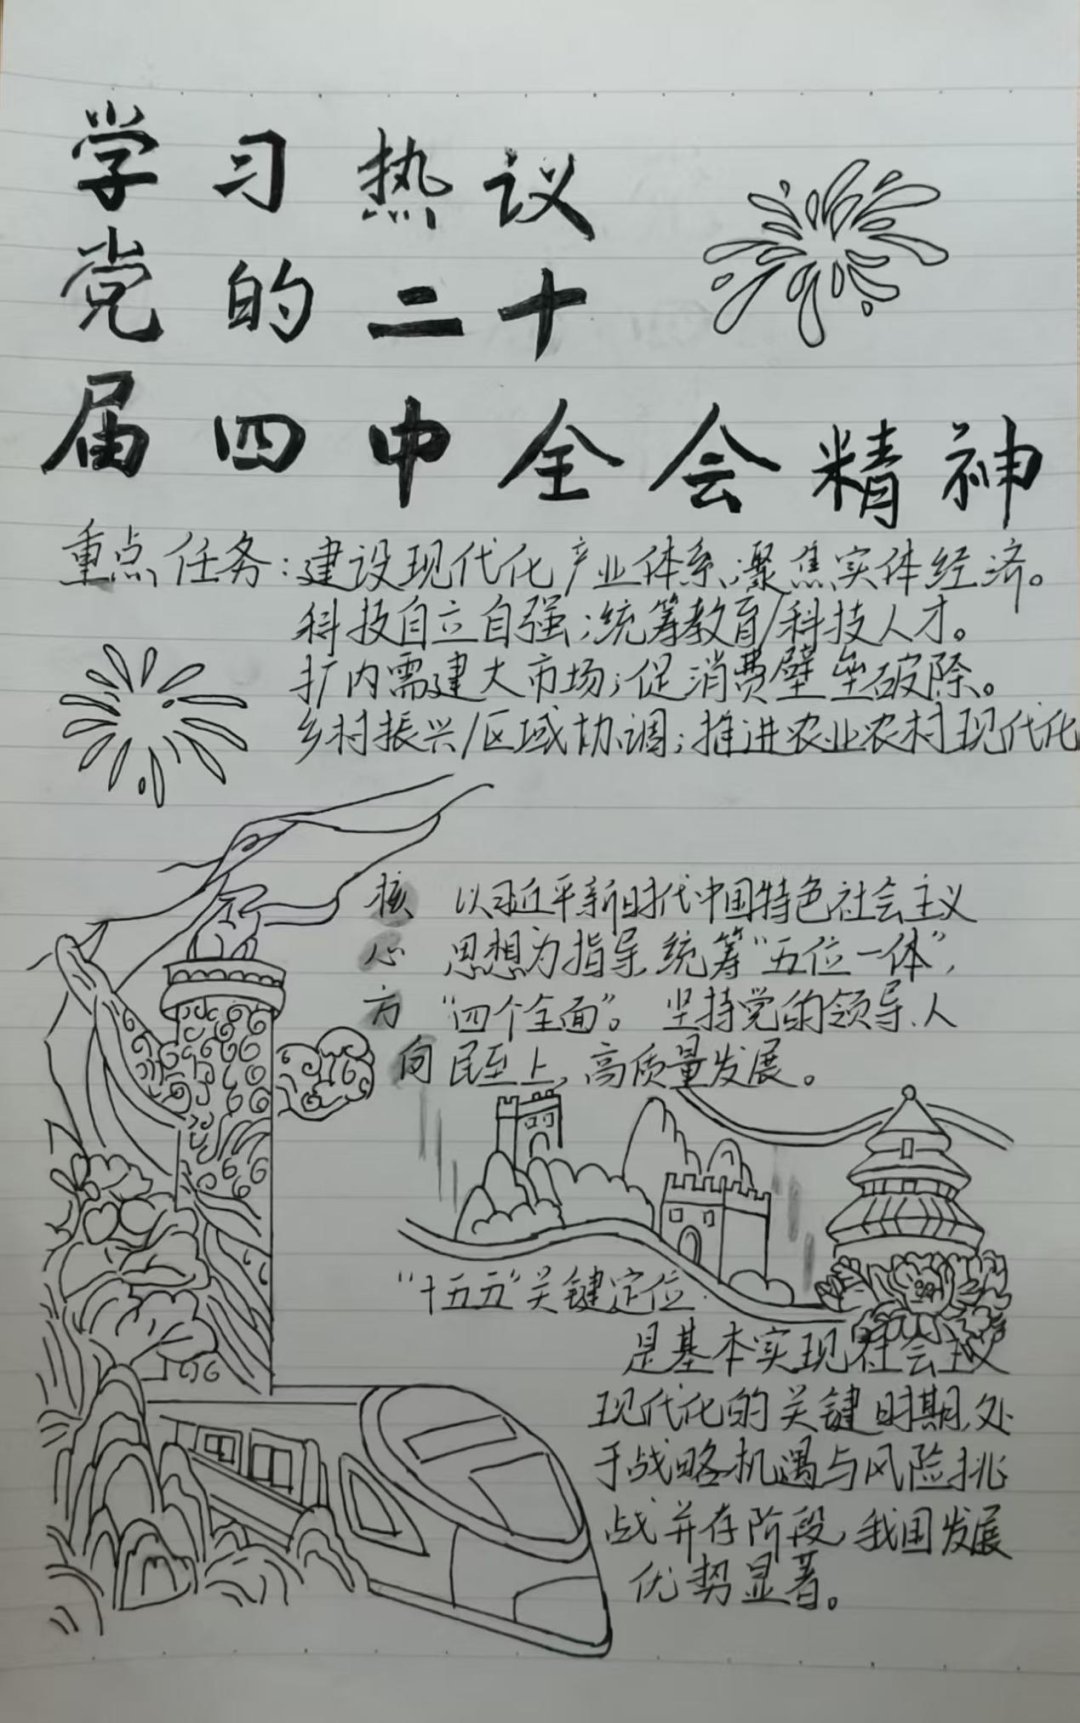 学习热议
党的二十
届四中全会精神
重点任务:建设现代化产业体系;聚焦实体经济。
科技自立自强;统筹教育/科技人才。
扩内需建大市场;促消费壁垒破除。
乡村振兴/区域协调;推进农业农村现代化
核心方向
以习近平新时代中国特色社会主义
思想为指导,统筹“五位一体”,
“四个全面”。坚持党的领导、人
民至上,高质量发展。
“十五五”关键定位:
是基本实现社会主义
现代化的关键时期,处
于战略机遇与风险挑
战并存阶段,我国发展
优势显著。